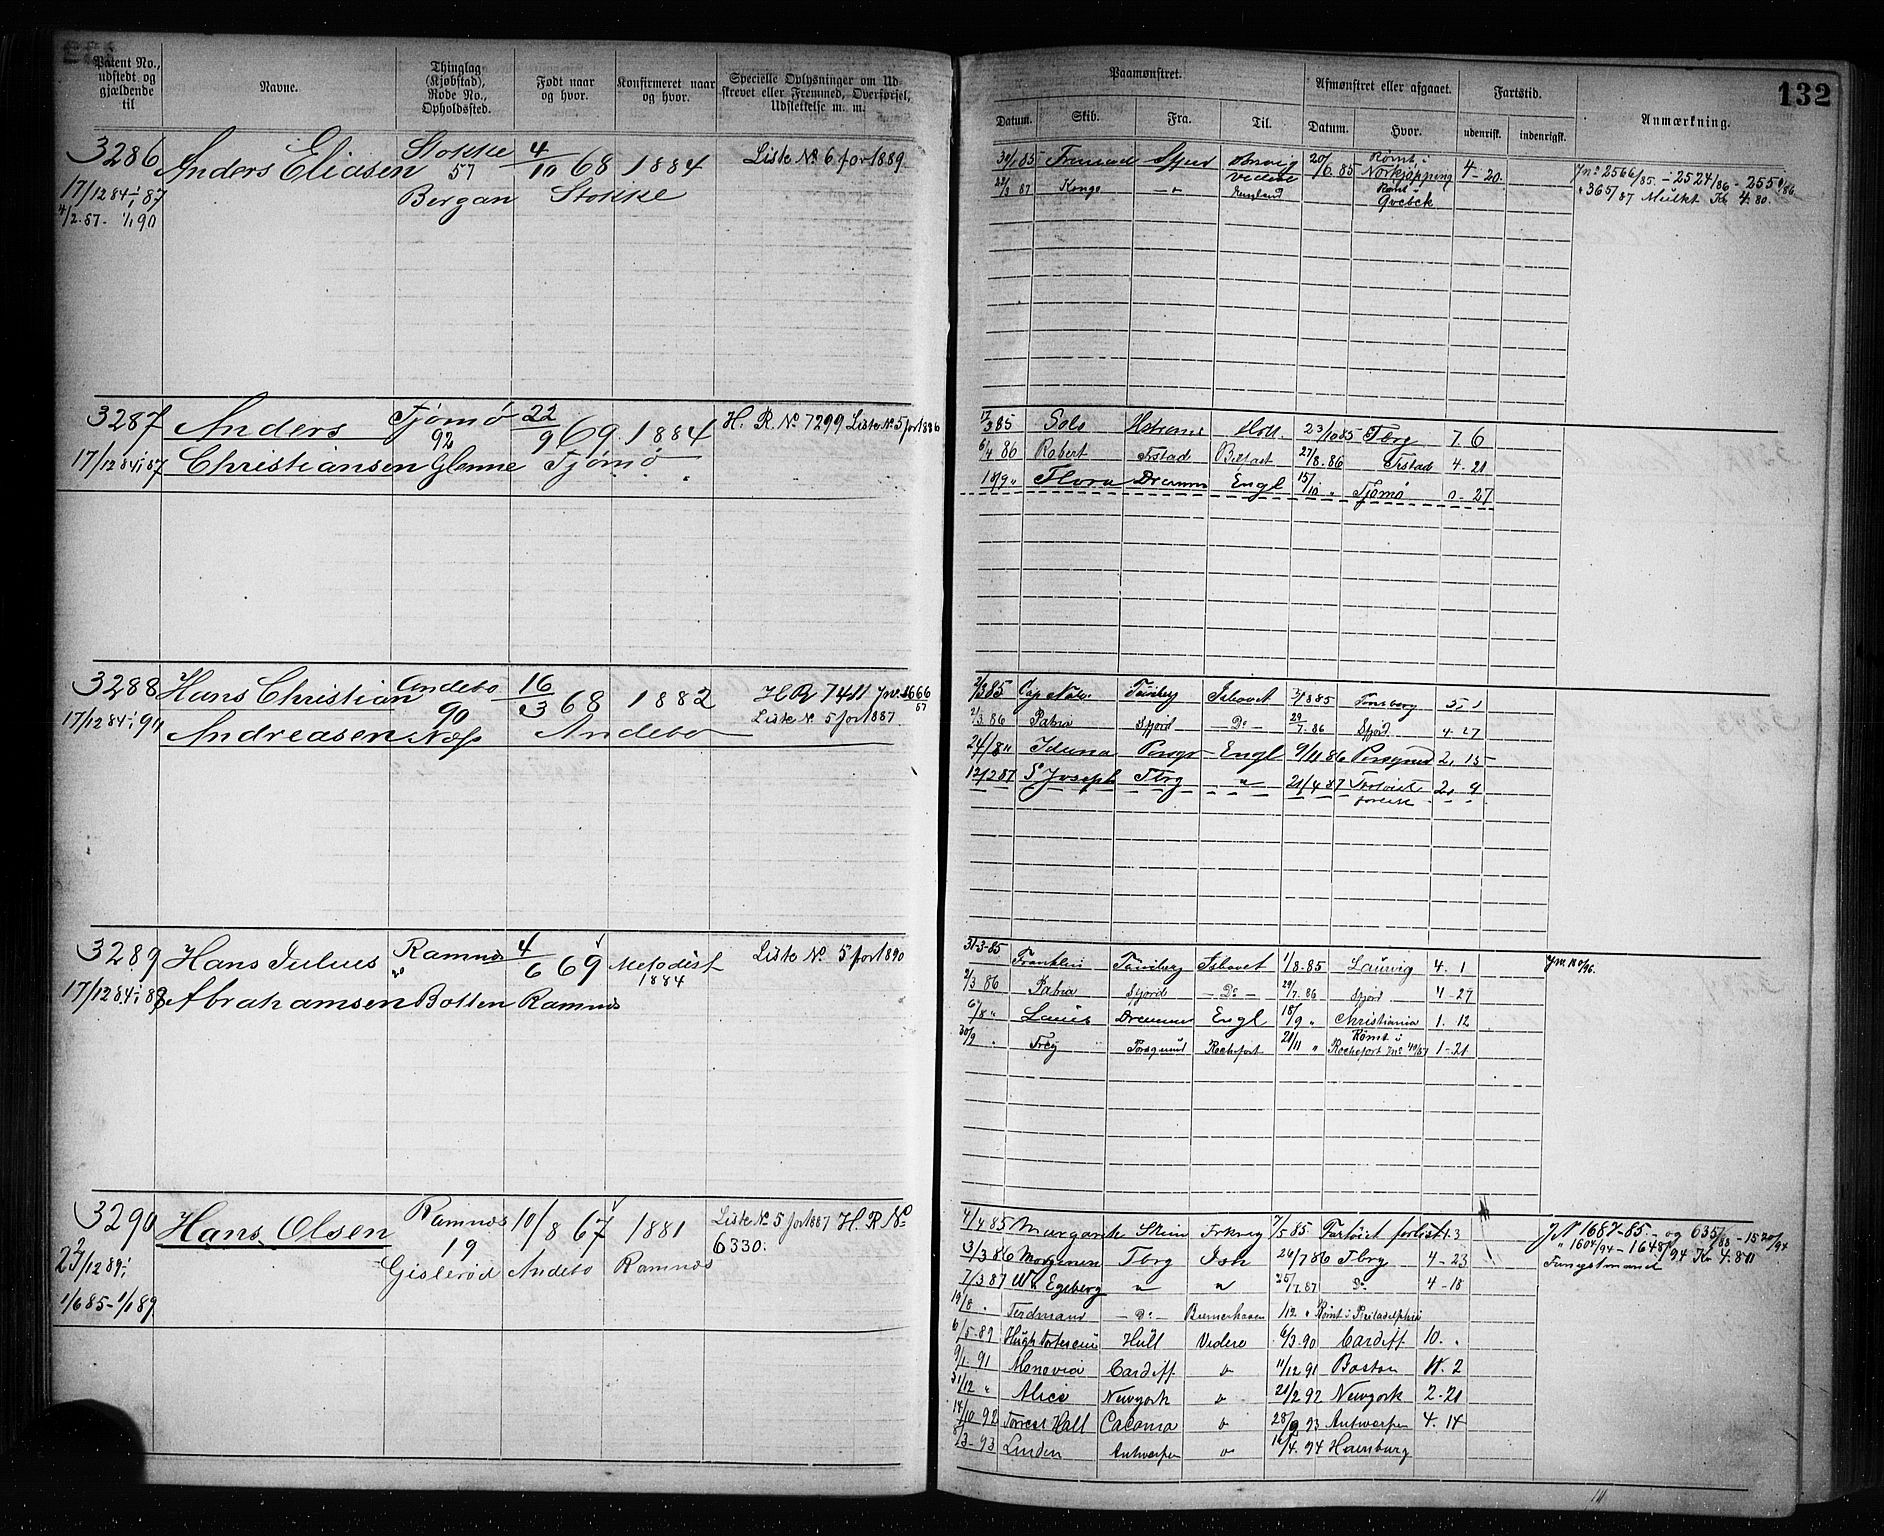 132
Patent No., udstedt og gjældende til
Navne.
Thinglag (Kjøbstad), Rode No., Opholdssted.
Født naar og hvor.
Konfirmeret naar og hvor.
Specielle Oplysninger om Udskrevet eller Fremmed, Overførsel, Udslettelse m. m.
Paamønstret.
Afmønstret eller afgaaet.
Fartstid.
Anmærkning.
Datum. Skib. Fra. Til. Datum. Hvor. udenrisk. indenrigsk.
3286 Anders Eliasen Stokke 4/10 68 1884 Liste No 6 for 1889
57
17/12 84 - 1/1 87 Bergan Stokke
4/2 87 - 1/1 90
Fremad 20/6 85 Rømt i Norkjøpping 4-20
22/3 87 Kongo England Rømt i Qvebek
Jno 2566/85 - 2524/86
365/87 Mulkt Kr 4.80
3287 Anders Tjømø 22/9 69 1884 H. R. No 7299 Liste No 5 for 1886
92
17/12 84 - 1/1 87 Christiansen Glenne Tjømø
17/3 85 Solo 23/10 85 Tbrg 7. 6
6/4 86 Robert Belfast 27/8 86 4-21
18/9 " Flora Drammen Engl 15/10 " Tjømø 0-27
3288 Hans Christian Andebo 16/3 68 1882 H R 7411
90 Liste No 5 for 1887
17/12 84 - 1/1 90 Andreasen Næs Andebo
2/3 85 Tønsberg Ishavet 85 Tønsberg 5, 1
2/3 86 Fjord Do 29/7 86 Sfjord 4-27
24/8 " Iduna Porsgr Engl 9/11 86 Porsgrund 2, 15
12/2 87 St Joseph Tbrg " 21/4 87 forlist 2, 9
3289 Hans Julius Ramnæs 4/6 69 Metodist 1884 Liste No 5 for 1890
17/12 84 - 1/1 89 Abrahamsen Botten Ramnæs
31-3-85 Franklin Tønsberg Ishavet 1/8 85 Laurvig 4. 1
2/3 86 Sfjord - Do - 29/7 86 Sfjord 4-27
6/8 " Drammen Engl 18/9 " Christiania 1. 12
30/9 " Frey Porsgrund Rochefort 21/11 " Rømt i Rochefort 1-21
3290 Hans Olsen Ramnæs 10/8 67 1881 Liste No 5 for 1887 H. R No 6330.
19
Gislerød Andebo Ramnæs
1/6 85 - 1/1 89
4/4 85 Skien 7/5 85 Fartøiet forlist 1.3
3/3 86 Morgenen Tbrg Ish 24/7 86 Tbrg 4-23
7/3 87 Wm Egeberg " " 25/7 87 Do 4-18
19/8 " Ferdinand - Do - Bremerhaven 1/12 " Rømt i Philadelphia
6/5 89 Hull Videre 6/3 90 Cardiff 10. "
9/1 91 Menevia Cardiff " 11/12 91 Boston 11. 2
31/12 " Alice Newyork " 21/2 92 Newyork 2-21
14/10 92 Forrest Hall " 28/2 93 Antwerpen 4. 14
8/3 93 Linden Antwerpen " 16/4 94 Hamburg
J No 1687-85 og 635/88 - 1520/94
" 1604/94 - 1648/94 Kr 4.80